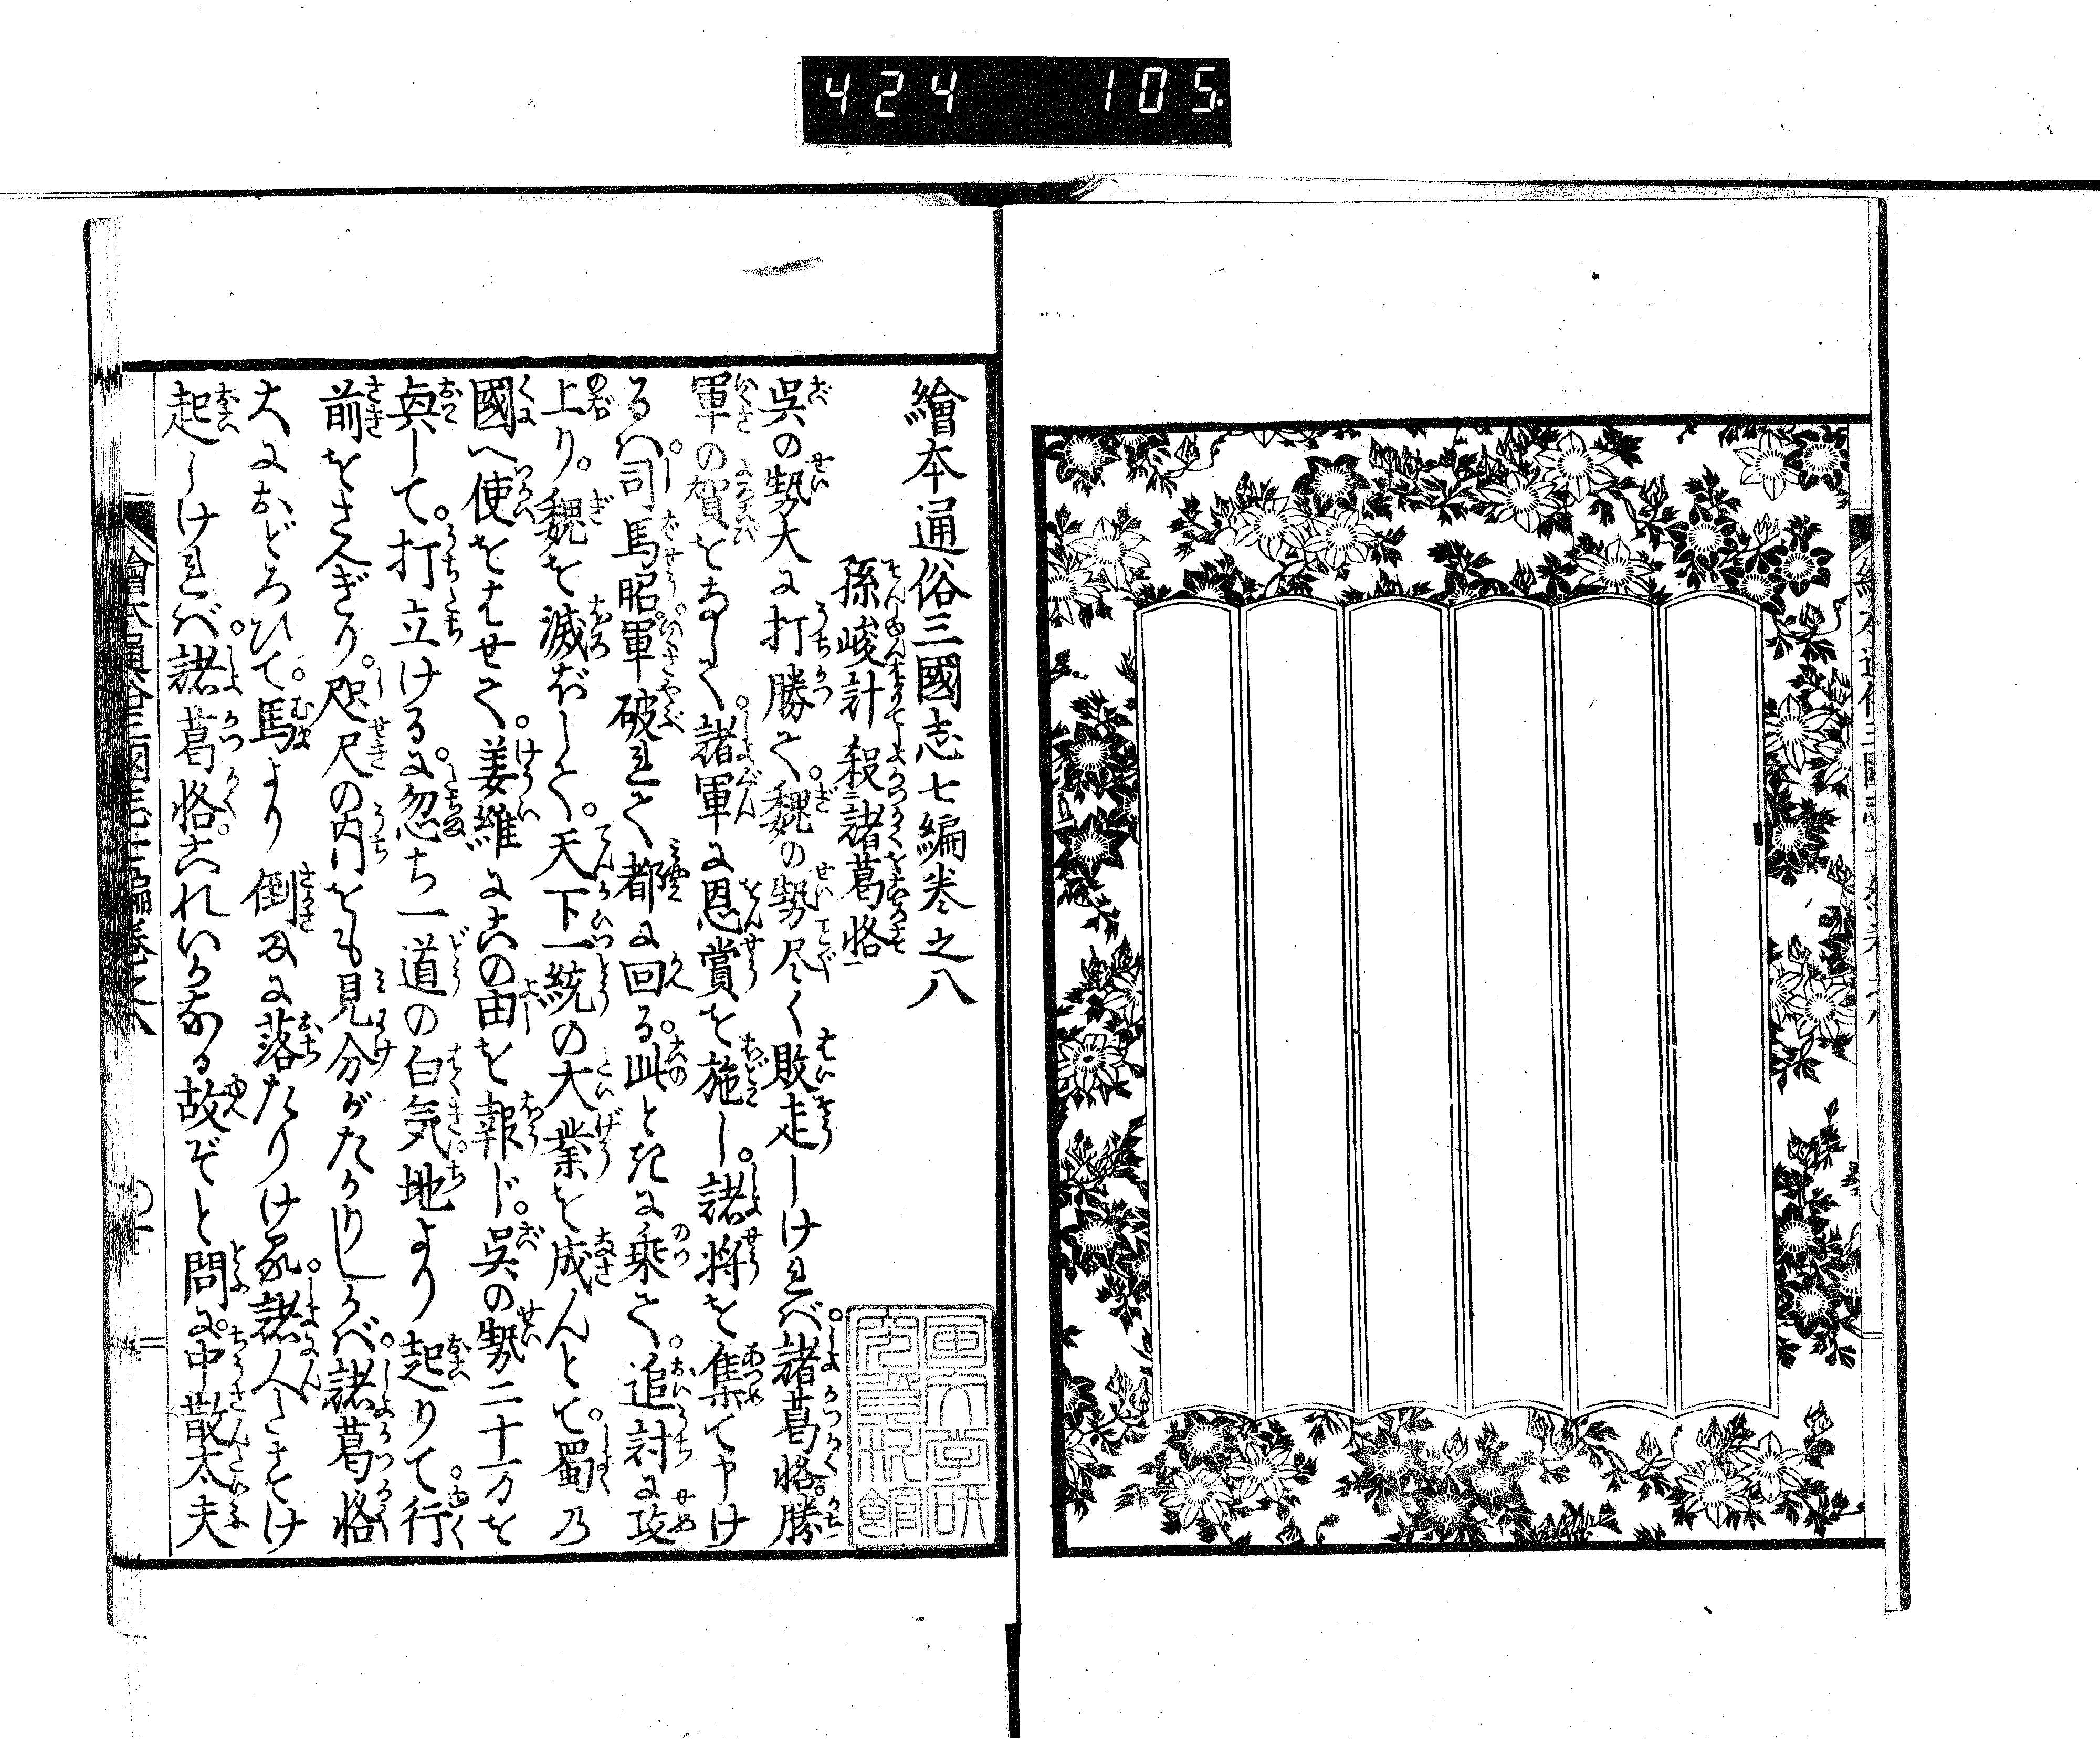 424 105
繪本通俗三國志七編巻之八
孫峻計殺二諸葛恪一
呉の勢大に打勝て。魏の勢尽く敗走しけれバ。諸葛恪。勝
軍の賀をなして。諸軍に恩賞を施し。諸将を集て申け
るハ。司馬昭。軍破れて都に回る。此ときに乗て。追討に攻
上り。魏を滅ぼして。天下一統の大業を成んとて。蜀乃
國へ使をはせて。姜維にこの由を報じ。呉の勢二十万を
興して。打立けるに。忽ち一道の白気。地より起りて。行
前をさへぎり。咫尺の内をも見分がたかりしかバ。諸葛恪
大におどろひて。馬より倒に落たりける。諸人たすけ
起しけれバ。諸葛恪。これいかなる故ぞと問に。中散太夫
繪本通俗三國志七編巻之八